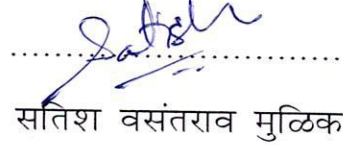 Satish
सतिश वसंतराव मुळिक